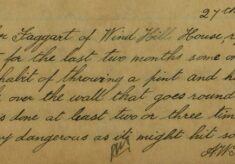 27th
r Taggart of Wind Hill House r
t for the last two months some o
habit of throwing a pint and h
over the wall that goes round
is done at least two or three tim
y dangerous as it might hit so
A.W.